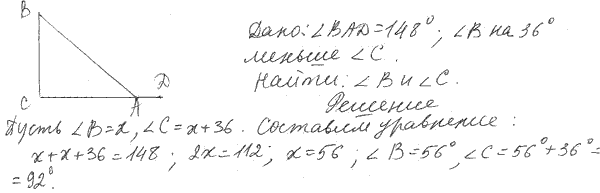 B
C
A
D
Дано: ∠BAD=148°; ∠B на 36°
меньше ∠C.
Найти: ∠B и ∠C.
Решение
Пусть ∠B=x, ∠C=x+36. Составим уравнение:
x+x+36=148; 2x=112; x=56; ∠B=56°, ∠C=56°+36°=
=92°.